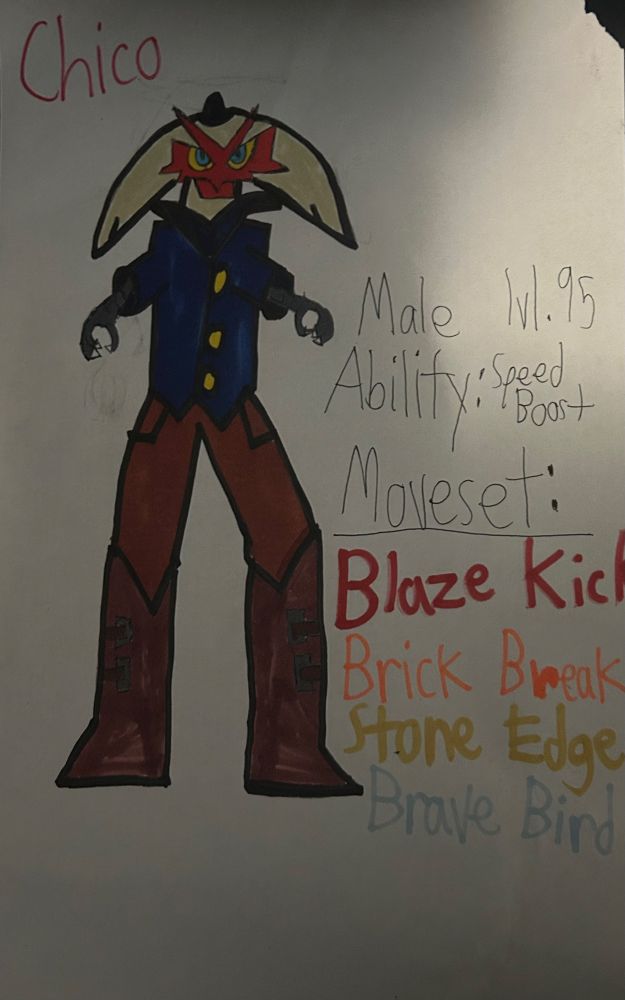 Chico
Male lvl. 95
Ability: Speed
Boost
Moveset:
Blaze Kick
Brick Break
Stone Edge
Brave Bird